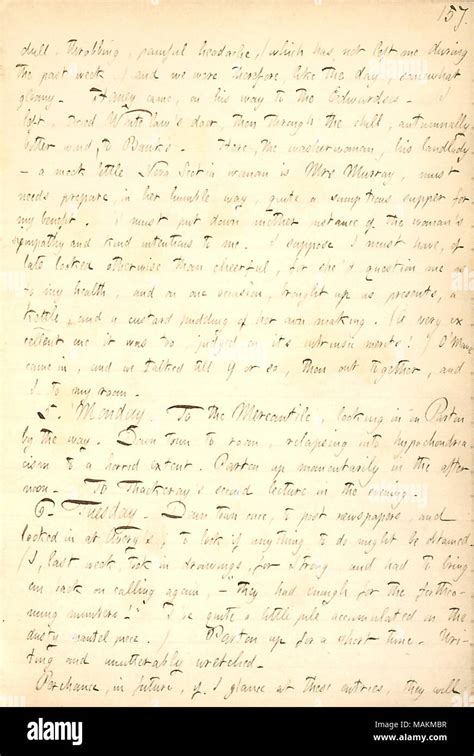 157.
dull, throbbing, painful headache, (which has not left me during
the past week,) and we were therefore, like the day, somewhat
gloomy. Haney came, on his way to the Edwardses. I
left, Waite law's door, then through the chill, autumnally
bitter wind, to Banks. Here, the washerwoman, his landlady
- a meek little Nova Scotia woman is Mrs Murray, must
needs prepare, in her humble way, quite a sumptuous supper for
my benefit. I must put down another instance of the woman's
sympathy and kind intentions to me. I suppose I must have, of
late looked otherwise than cheerful, for she'd question me as
to my health, and on one occasion, brought up as presents, a
and a custard pudding of her own making. (A very ex
cellent one it was too, judged on its intrinsic merits!)
came in, and we talked till 9 or so, then out together, and
I to my room.
5. Monday. To the Mercantile, looking in on Parton
by the way. Down town to room, relapsing into hypochondria
cism to a horrid extent. Parton up momentarily in the after
noon. To Thackeray's second lecture in the evening.
6. Tuesday. Down town once, to post newspapers, and
looked in at to look if anything to do might be obtained
(I, last week, took in drawings, for Strong, and had to bring
em back on calling again, - "they had enough for the forthco-
ming numbers!" I've quite a little pile accumulated on the
dusty mantel piece.) Parton up for a short time. Wri-
ting and unutterably wretched.
Perchance, in future, if I glance at these entries, they will
alamy
Image ID: MAKMBR
www.alamy.com